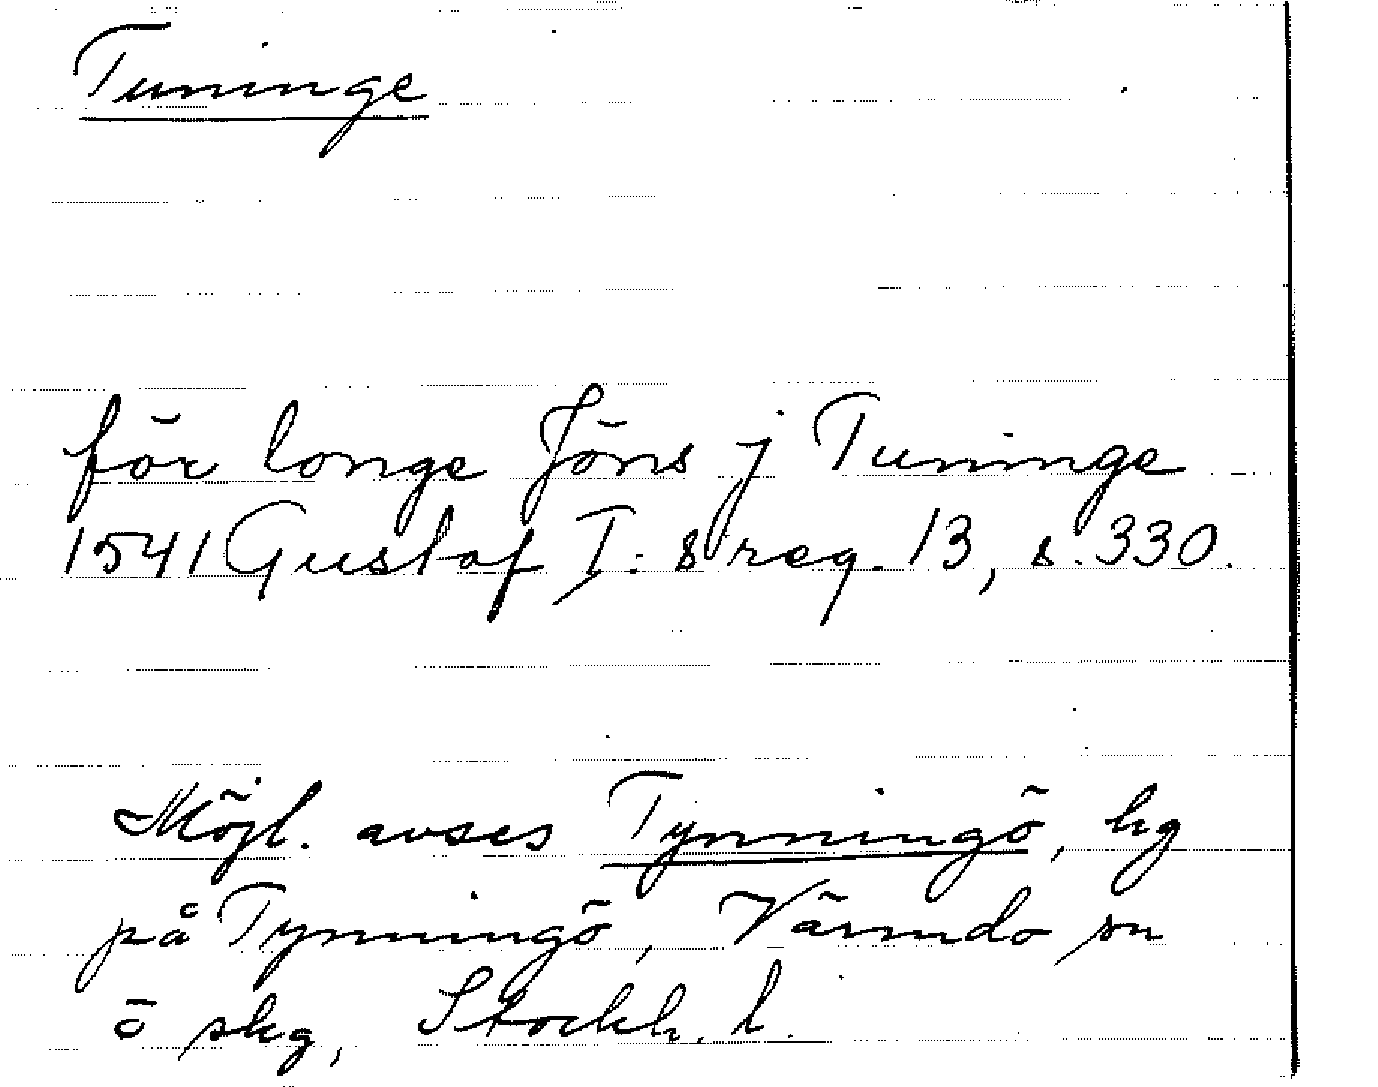 Tuninge
för longe Jöns j Tuninge
1541 Gustaf I:s reg. 13, s. 330.
Möjl. avses Tynningö, hg
på Tynningö, Värmdö sn
ö skg, Stockh. l.